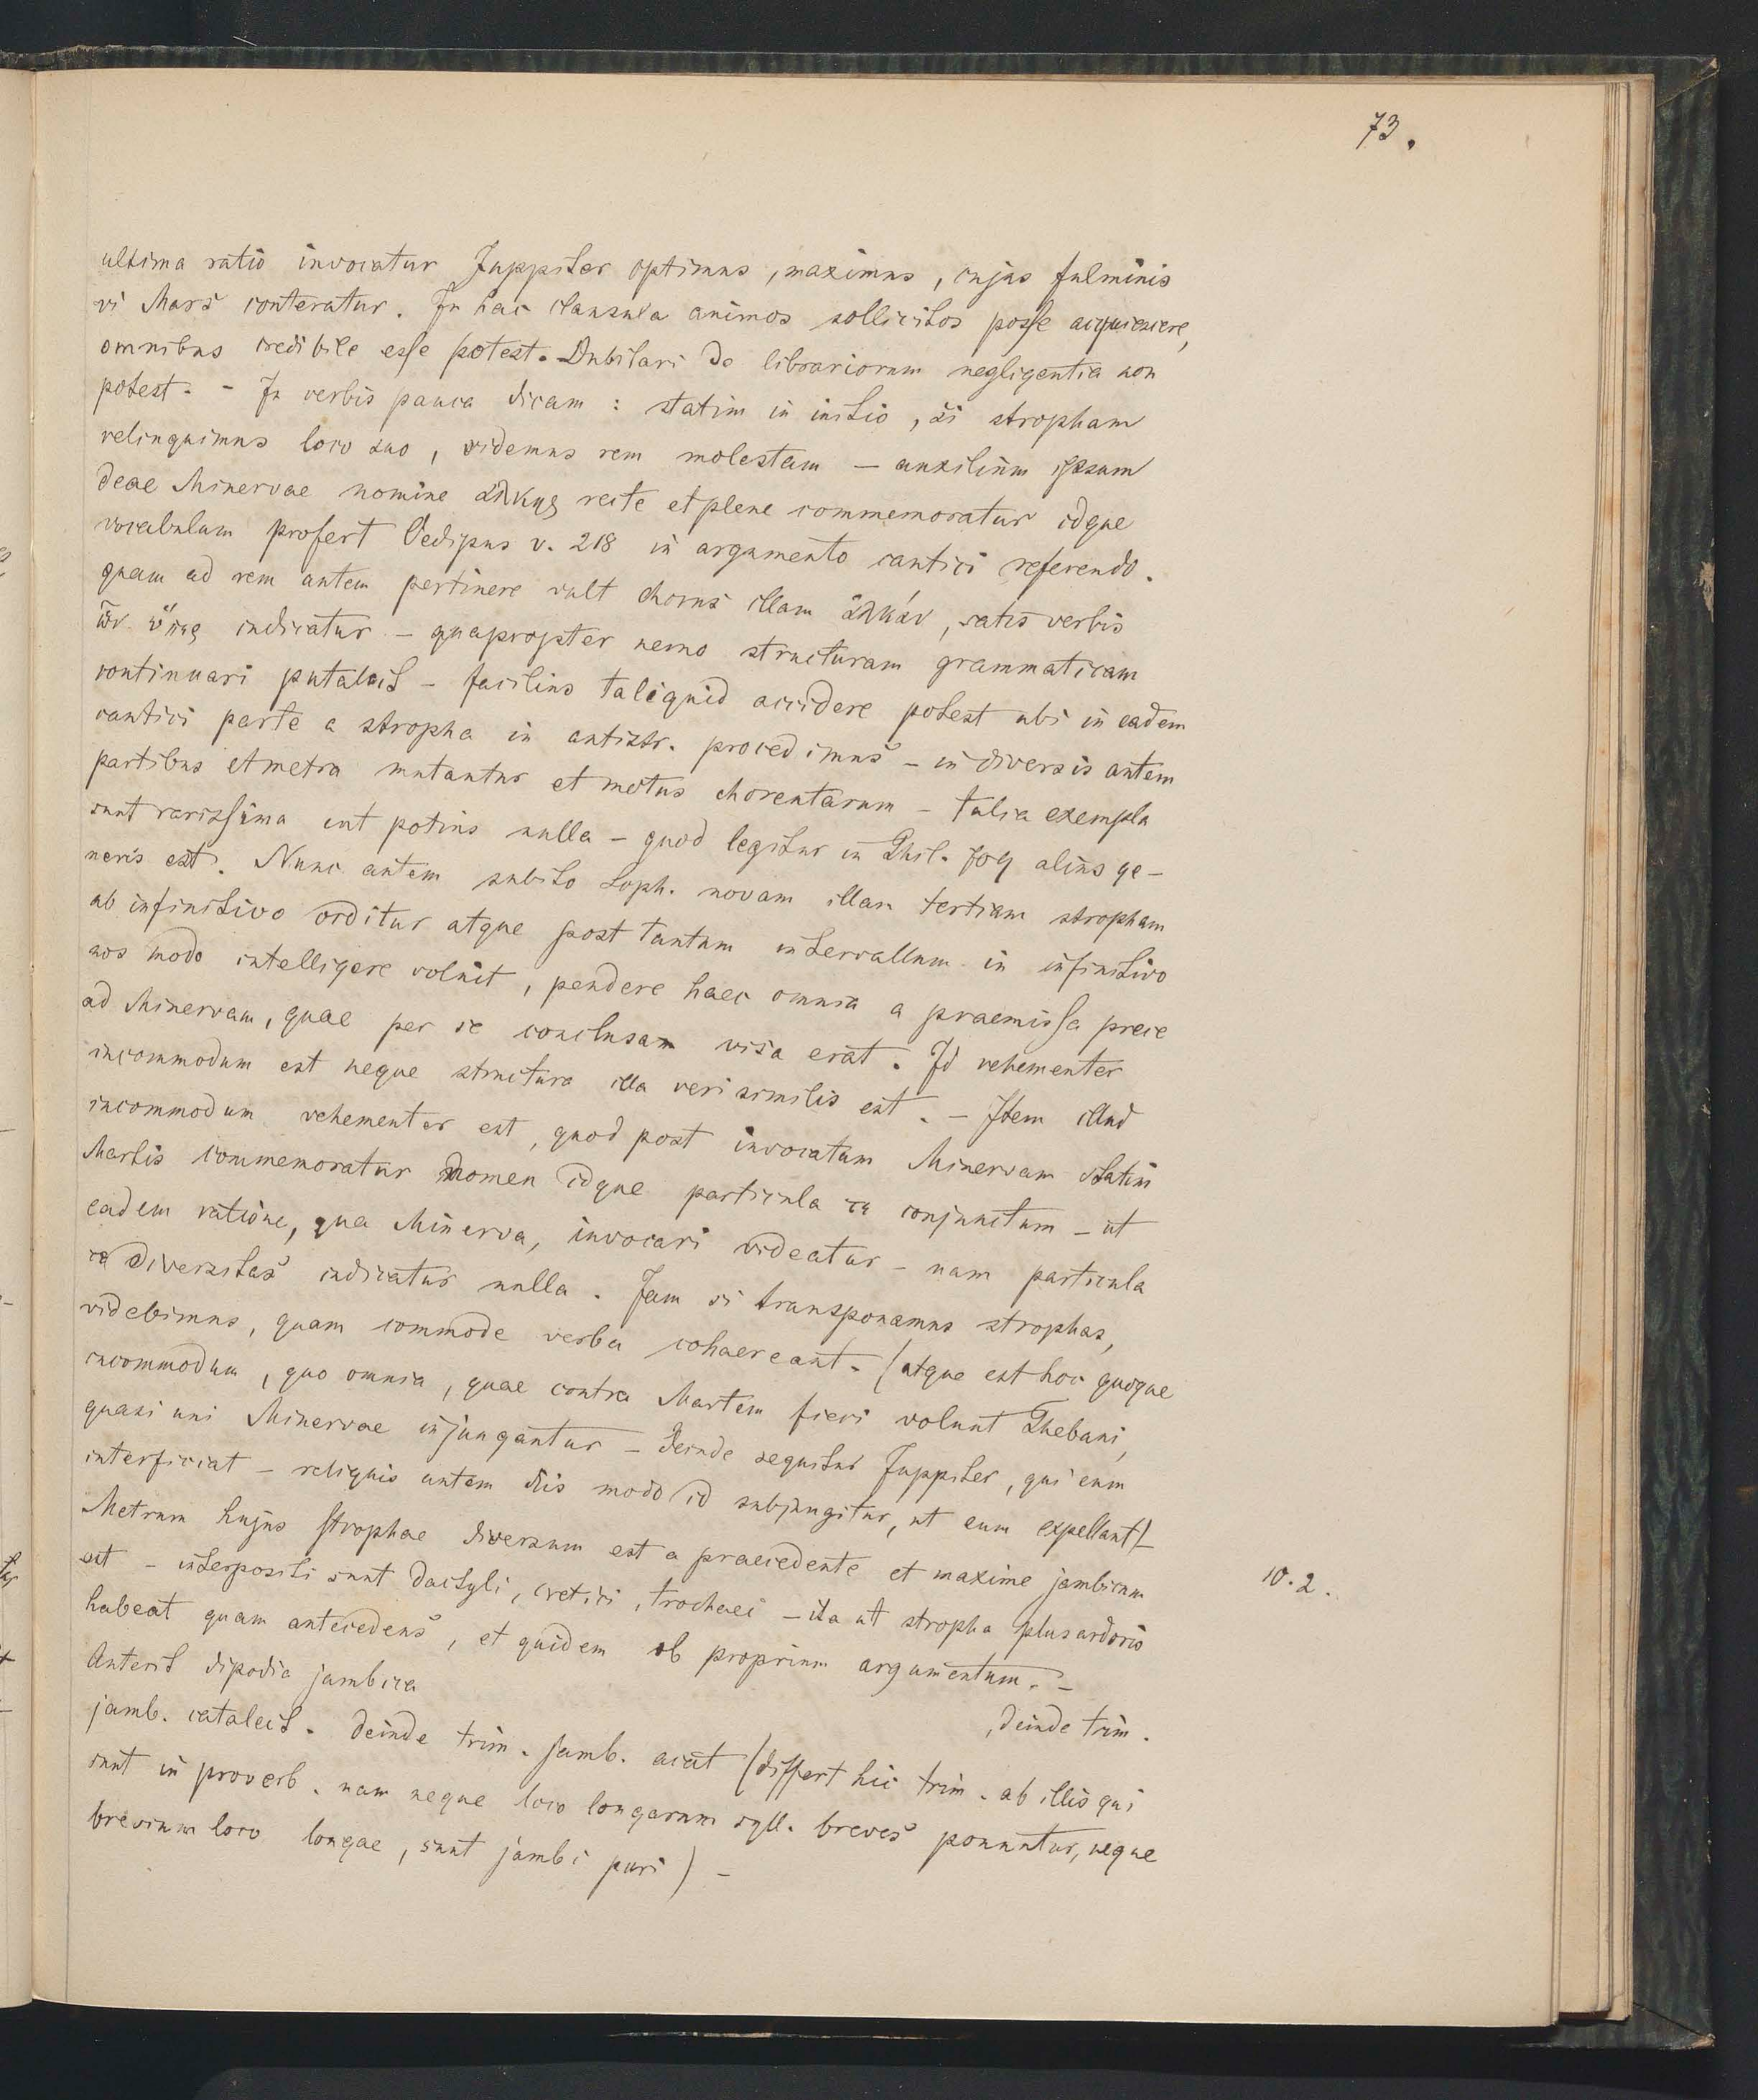 73.
ultima ratio invocatur Juppiter optimus, maximus, cujus fulminis
vi Mars conteratur. In hac clausula animos sollicitos posse acquiescere,
omnibus credibile esse potest. Dubitari de librariorum negligentia non
potest. - In verbis pauca dicam: statim in initio, si stropham
relinquimus loco suo, videmus rem molestam - auxilium ipsum
deae Minervae nomine ἀλκης recte et plene commemoratur idque
vocabulum profert Oedipus v. 218 in argumento cantici referendo.
quam ad rem autem pertinere vult chorus illam ἀλκάν, satis verbis
indicatur - quapropter nemo structuram grammaticam
continuari putabit - facilius taliquid accidere potest ubi in eadem
cantici parte a stropha in antistr. procedimus - in diversis autem
partibus et metra mutantur et motus choreutarum - talia exempla
sunt rarissima aut potius nulla - quod legitur in Phil. 709 alius ge-
neris est. Nunc autem subito Soph. novam illam tertiam stropham
ab infinitivo orditur atque post tantum intervallum in infinitivo
nos modo intelligere voluit, pendere haec omnia a praemissa prece
ad Minervam, quae per se conclusam visa erat. Id vehementer
incommodum est neque structura illa veri similis est. - Item illud
incommodum vehementer est, quod post invocatam Minervam statim
Martis commemoratur nomen idque particula τε conjunctum - ut
eadem ratione, qua Minerva, invocari videatur - nam particula
τε diversitas indicatur nulla. Jam si transponamus strophas,
videbimus, quam commode verba cohaereant. (atque est hoc quoque
incommodum, quo omnia, quae contra Martem fieri volunt Thebani,
quasi uni Minervae injungantur - deinde sequitur Juppiter, qui eum
interficiat - reliquis autem diis modo id subjungitur, ut eum expellant) -
Metrum hujus strophae diversum est a praecedente et maxime jambicum
est - interpositi sunt dactyli, cretici, trochaei - ita ut stropha plus ardoris
10.2.
habeat quam antecedens, et quidem ob proprium argumentum. -
Anteit dipodia jambica , deinde trim.
jamb. catalect. Deinde trim. jamb. acat (differt hic trim. ab illis qui
sunt in proverb. nam neque loco longarum syll. breves ponuntur, neque
brevium loco longae, sunt jambi puri) -